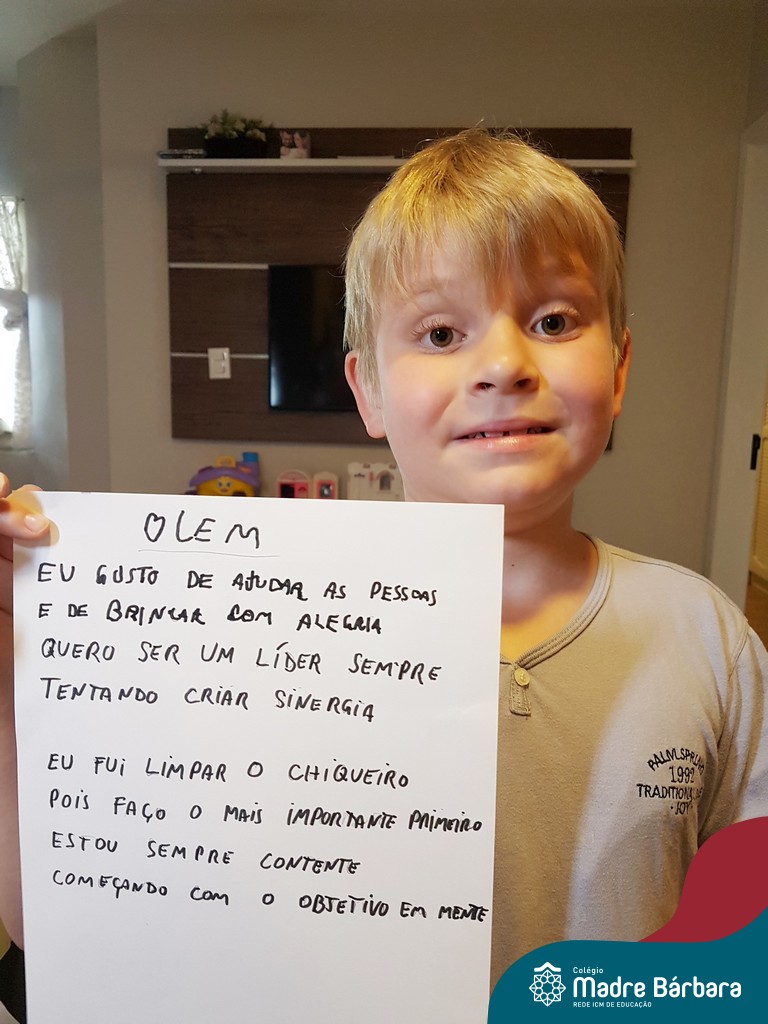 OLEM
EU GOSTO DE AJUDAR AS PESSOAS
E DE BRINCAR COM ALEGRIA
QUERO SER UM LÍDER SEMPRE
TENTANDO CRIAR SINERGIA
EU FUI LIMPAR O CHIQUEIRO
POIS FAÇO O MAIS IMPORTANTE PRIMEIRO
ESTOU SEMPRE CONTENTE
COMEÇANDO COM O OBJETIVO EM MENTE
PALM SPRING
1992
TRADITIONAL
Colégio
Madre Bárbara
REDE ICM DE EDUCAÇÃO